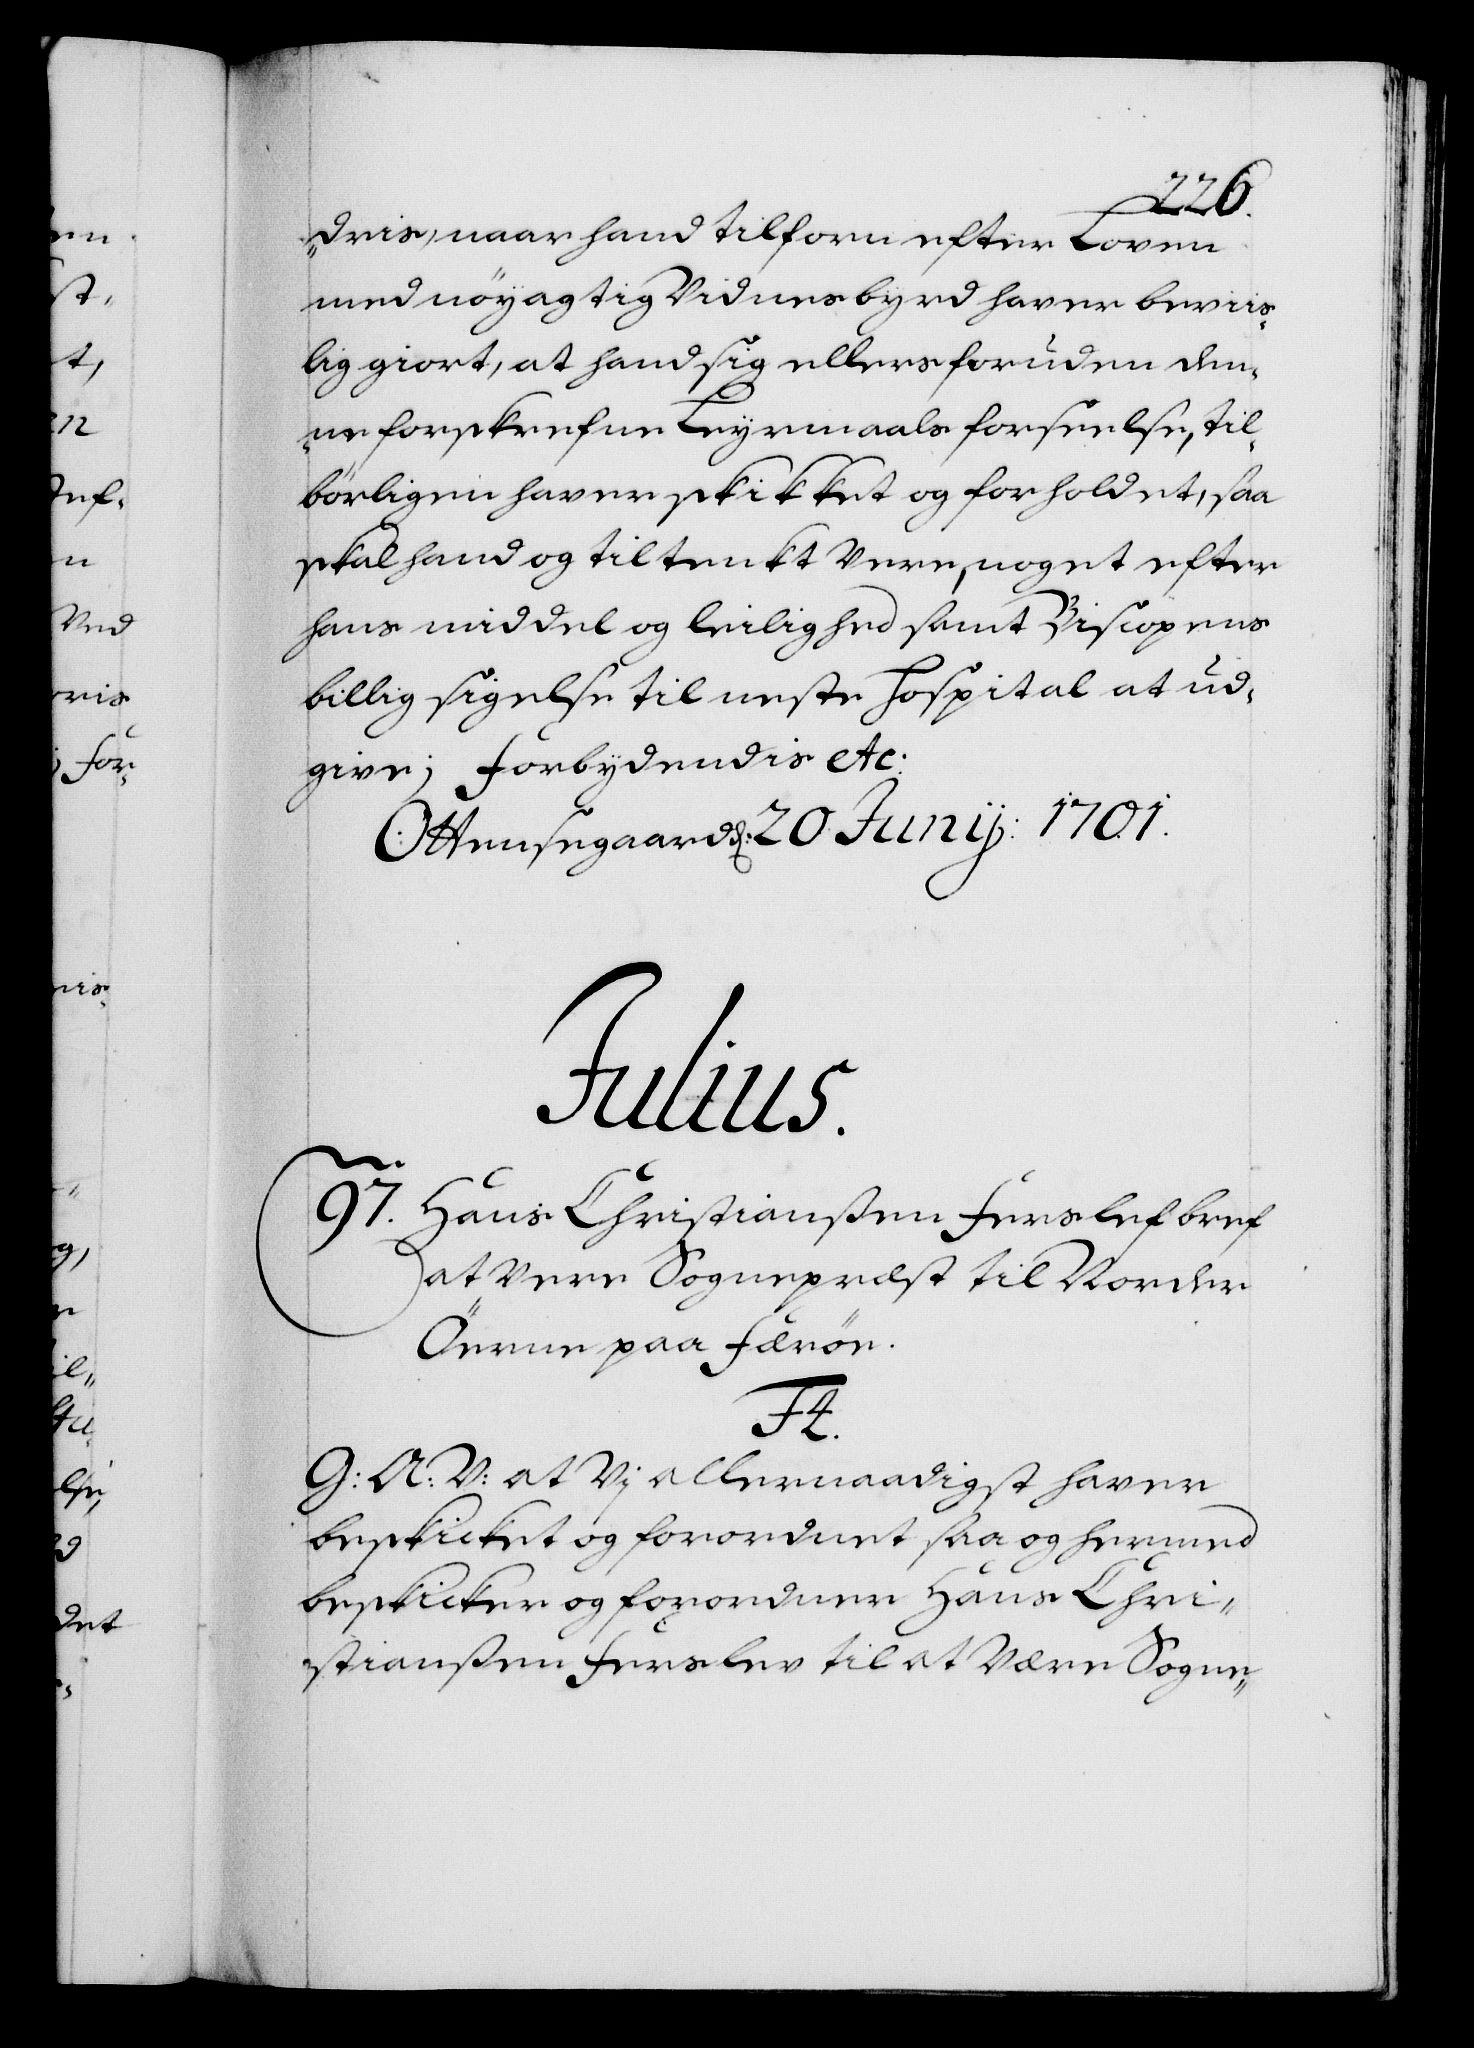 226.
"dris, naar hand tilforn efter Loven
med nöyagtig Vidnesbyrd haver beviis-
lig giort, at hand sig ellers foruden den-
"ne forskrefne Leyrmaals forseelse, til-
börligen haver skikket og forholdet, saa
skal hand og tiltenkt Vere, noget efter
hans middel og leilighed samt Biscopens
billig sigelse til neste Hospital at ud-
give; Forbydendis etc:
Ottensegaard d: 20 Junij: 1701.
Julius.
97. Hans Christianßen Ferslef bref
at Vere Sognepræst til Norder
Öerne paa Færöe.
F4.
G: A: V: at Vj allernaadigst haver
beskicket og forordnet saa og hermed
beskicker og forordner Hans Chri-
stianßen Ferslev til at Være Sogne-